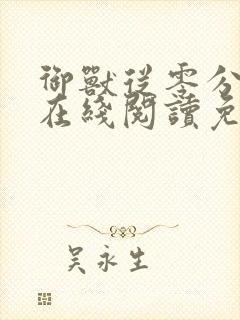 御獸從零分
在綫閱讀免
吳永生